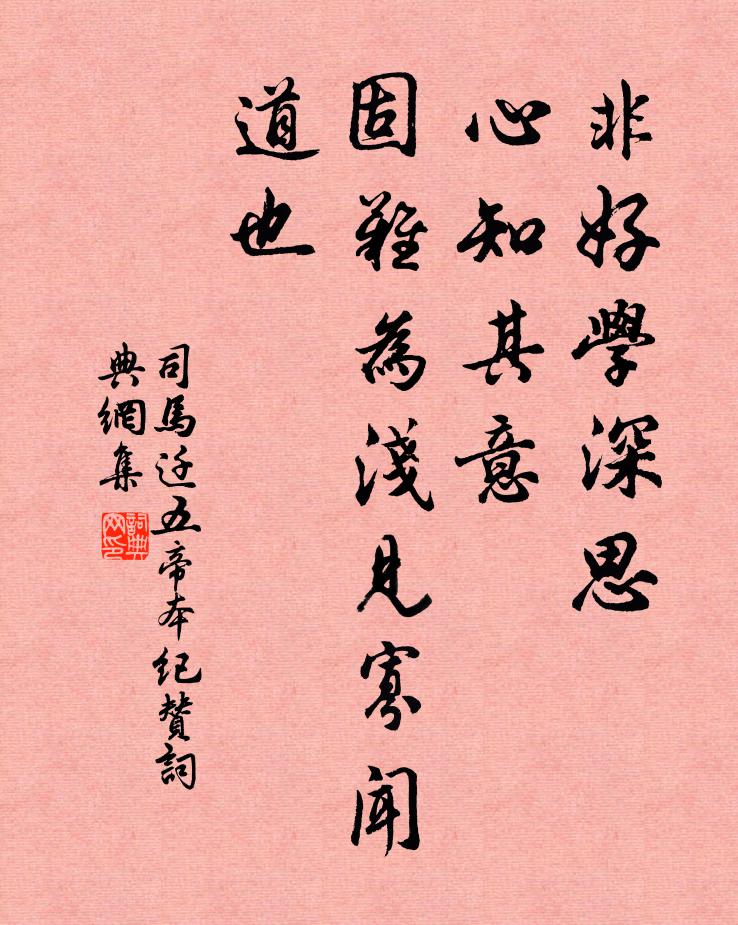 非好學深思
心知其意
固難為淺見寡聞
道也
司馬迁五帝本紀賛詞
典網集
詞典
网印